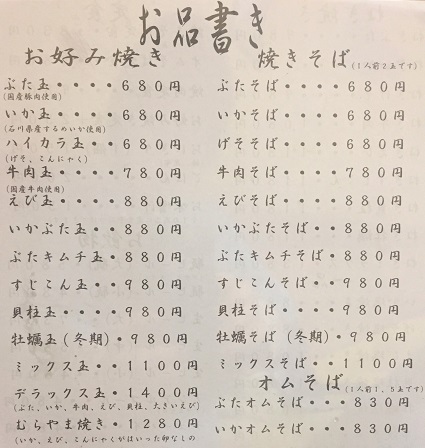 お品書き
お好み焼き
ぶた玉・・・・680円
(国産豚肉使用)
いか玉・・・・680円
(石川県産するめいか使用)
ハイカラ玉・・680円
(げそ、こんにゃく)
牛肉玉・・・・780円
(国産牛肉使用)
えび玉・・・・880円
いかぶた玉・・880円
ぶたキムチ玉・880円
すじこん玉・・980円
貝柱玉・・・・980円
牡蠣玉(冬期)・980円
ミックス玉・・1100円
デラックス玉・1400円
(ぶた、いか、牛肉、えび、貝柱、大きいえび)
むらやま焼き・1280円
(いか、えび、こんにゃくがはいった卵なしの
焼きそば(1人前2玉です)
ぶたそば・・・・680円
いかそば・・・・680円
げそそば・・・・680円
牛肉そば・・・・780円
えびそば・・・・880円
いかぶたそば・・880円
ぶたキムチそば・880円
すじこんそば・・980円
貝柱そば・・・・980円
牡蠣そば(冬期)・980円
ミックスそば・・1100円
オムそば(1人前1、5玉です)
ぶたオムそば・・830円
いかオムそば・・830円